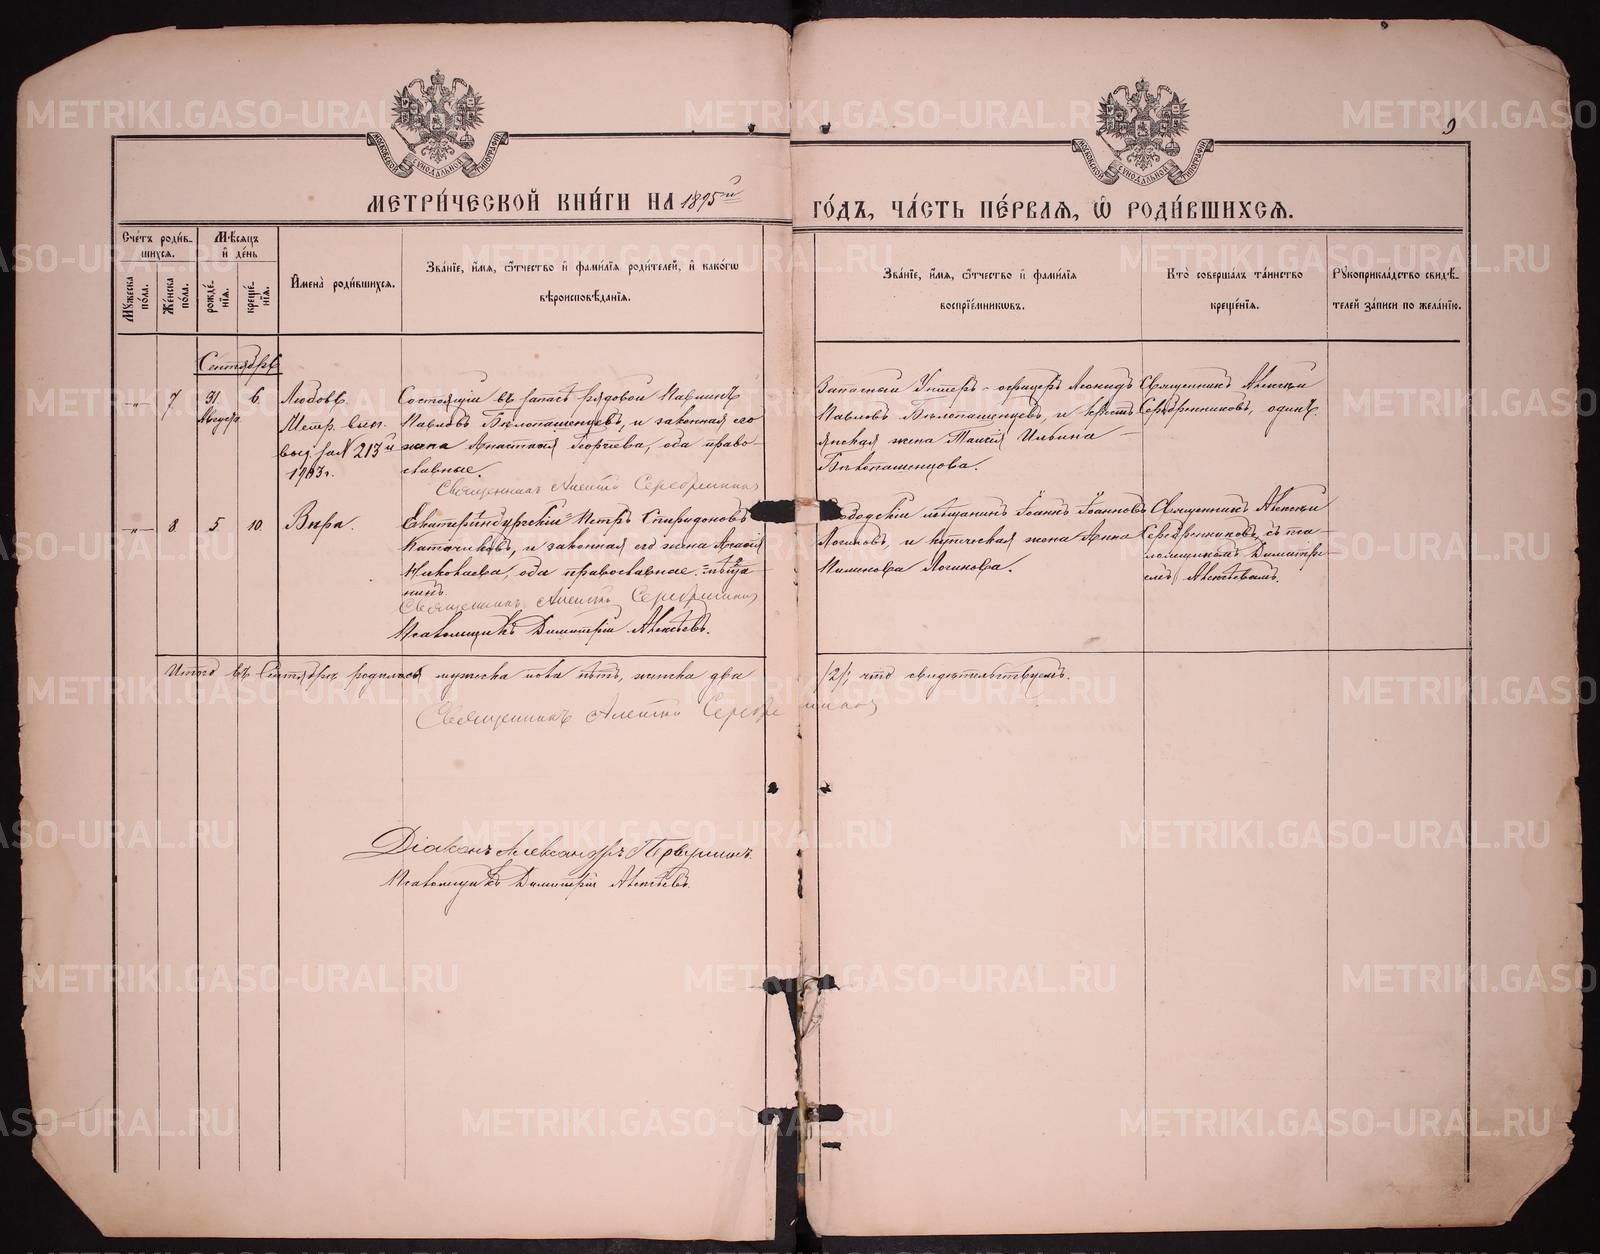 9
МОСКОВСКОЙ СУНОДАЛЬНОЙ ТИПОГРАФІИ
МОСКОВСКОЙ СУНОДАЛЬНОЙ ТИПОГРАФІИ
МЕТРИ́ЧЕСКОЙ КНИ́ГИ НА 1895й ГО́ДЪ, ЧА́СТЬ ПЕ́РВАЯ, Ѡ РОДИ́ВШИХСЯ.
Сче́тъ роди́в-
шихся.
Мѣ́сяцъ
и де́нь
Му́жеска по́ла.
Же́нска по́ла.
рожде́нія.
креще́нія.
И́мена роди́вшихся.
Зва́ніе, и́мя, о́тчество и фами́лія роди́телей, и како́гѡ
вѣроисповѣ́данія.
Зва́ніе, и́мя, о́тчество и фами́лія
воспріе́мниковъ.
Кто̀ соверша́лъ та́инство
креще́нія.
Рꙋкоприкла́дство свидѣ́-
телей за́писи по жела́нію.
Сентябрь
-"- 7 31 Августа 6.
Любовь.
Метр. вып.
выд. за № 213й
1903 г.
Состоящій въ запасѣ рядовой Павлинъ
Павловъ Бѣлопашенцевъ, и законная его
жена Анастасія Георгіева, оба право-
славные.
Священникъ Алексій Серебренниковъ
Запасный Унтеръ-офицеръ Леонидъ
Павловъ Бѣлопашенцевъ, и кресть-
янская жена Таисія Ильина
Бѣлопашенцова.
Священникъ Алексій
Серебренниковъ, одинъ.
-"- 8. 5 10.
Вѣра.
Екатеринбургскій Петръ Спиридоновъ
Каточиковъ, и законная его жена
Николаева, оба православные. мѣща-
нинъ
Священникъ Алексій Серебренниковъ
Псаломщикъ Димитрій Алексѣевъ.
мѣщанинъ Іоаннъ Іоанновъ
Логиновъ, и купеческая жена Анна
Логинова.
Священникъ Алексій
Серебренниковъ, съ пса-
ломщикомъ Димитрі-
емъ Алексѣевымъ.
Итого въ Сентябрѣ родилось мужска пола нѣтъ, женска два /2/, что свидѣтельствуемъ.
Священникъ Алексій Серебренниковъ
Діаконъ Александръ Первушинъ.
Псаломщикъ Димитрій Алексѣевъ.
METRIKI.GASO-URAL.RU